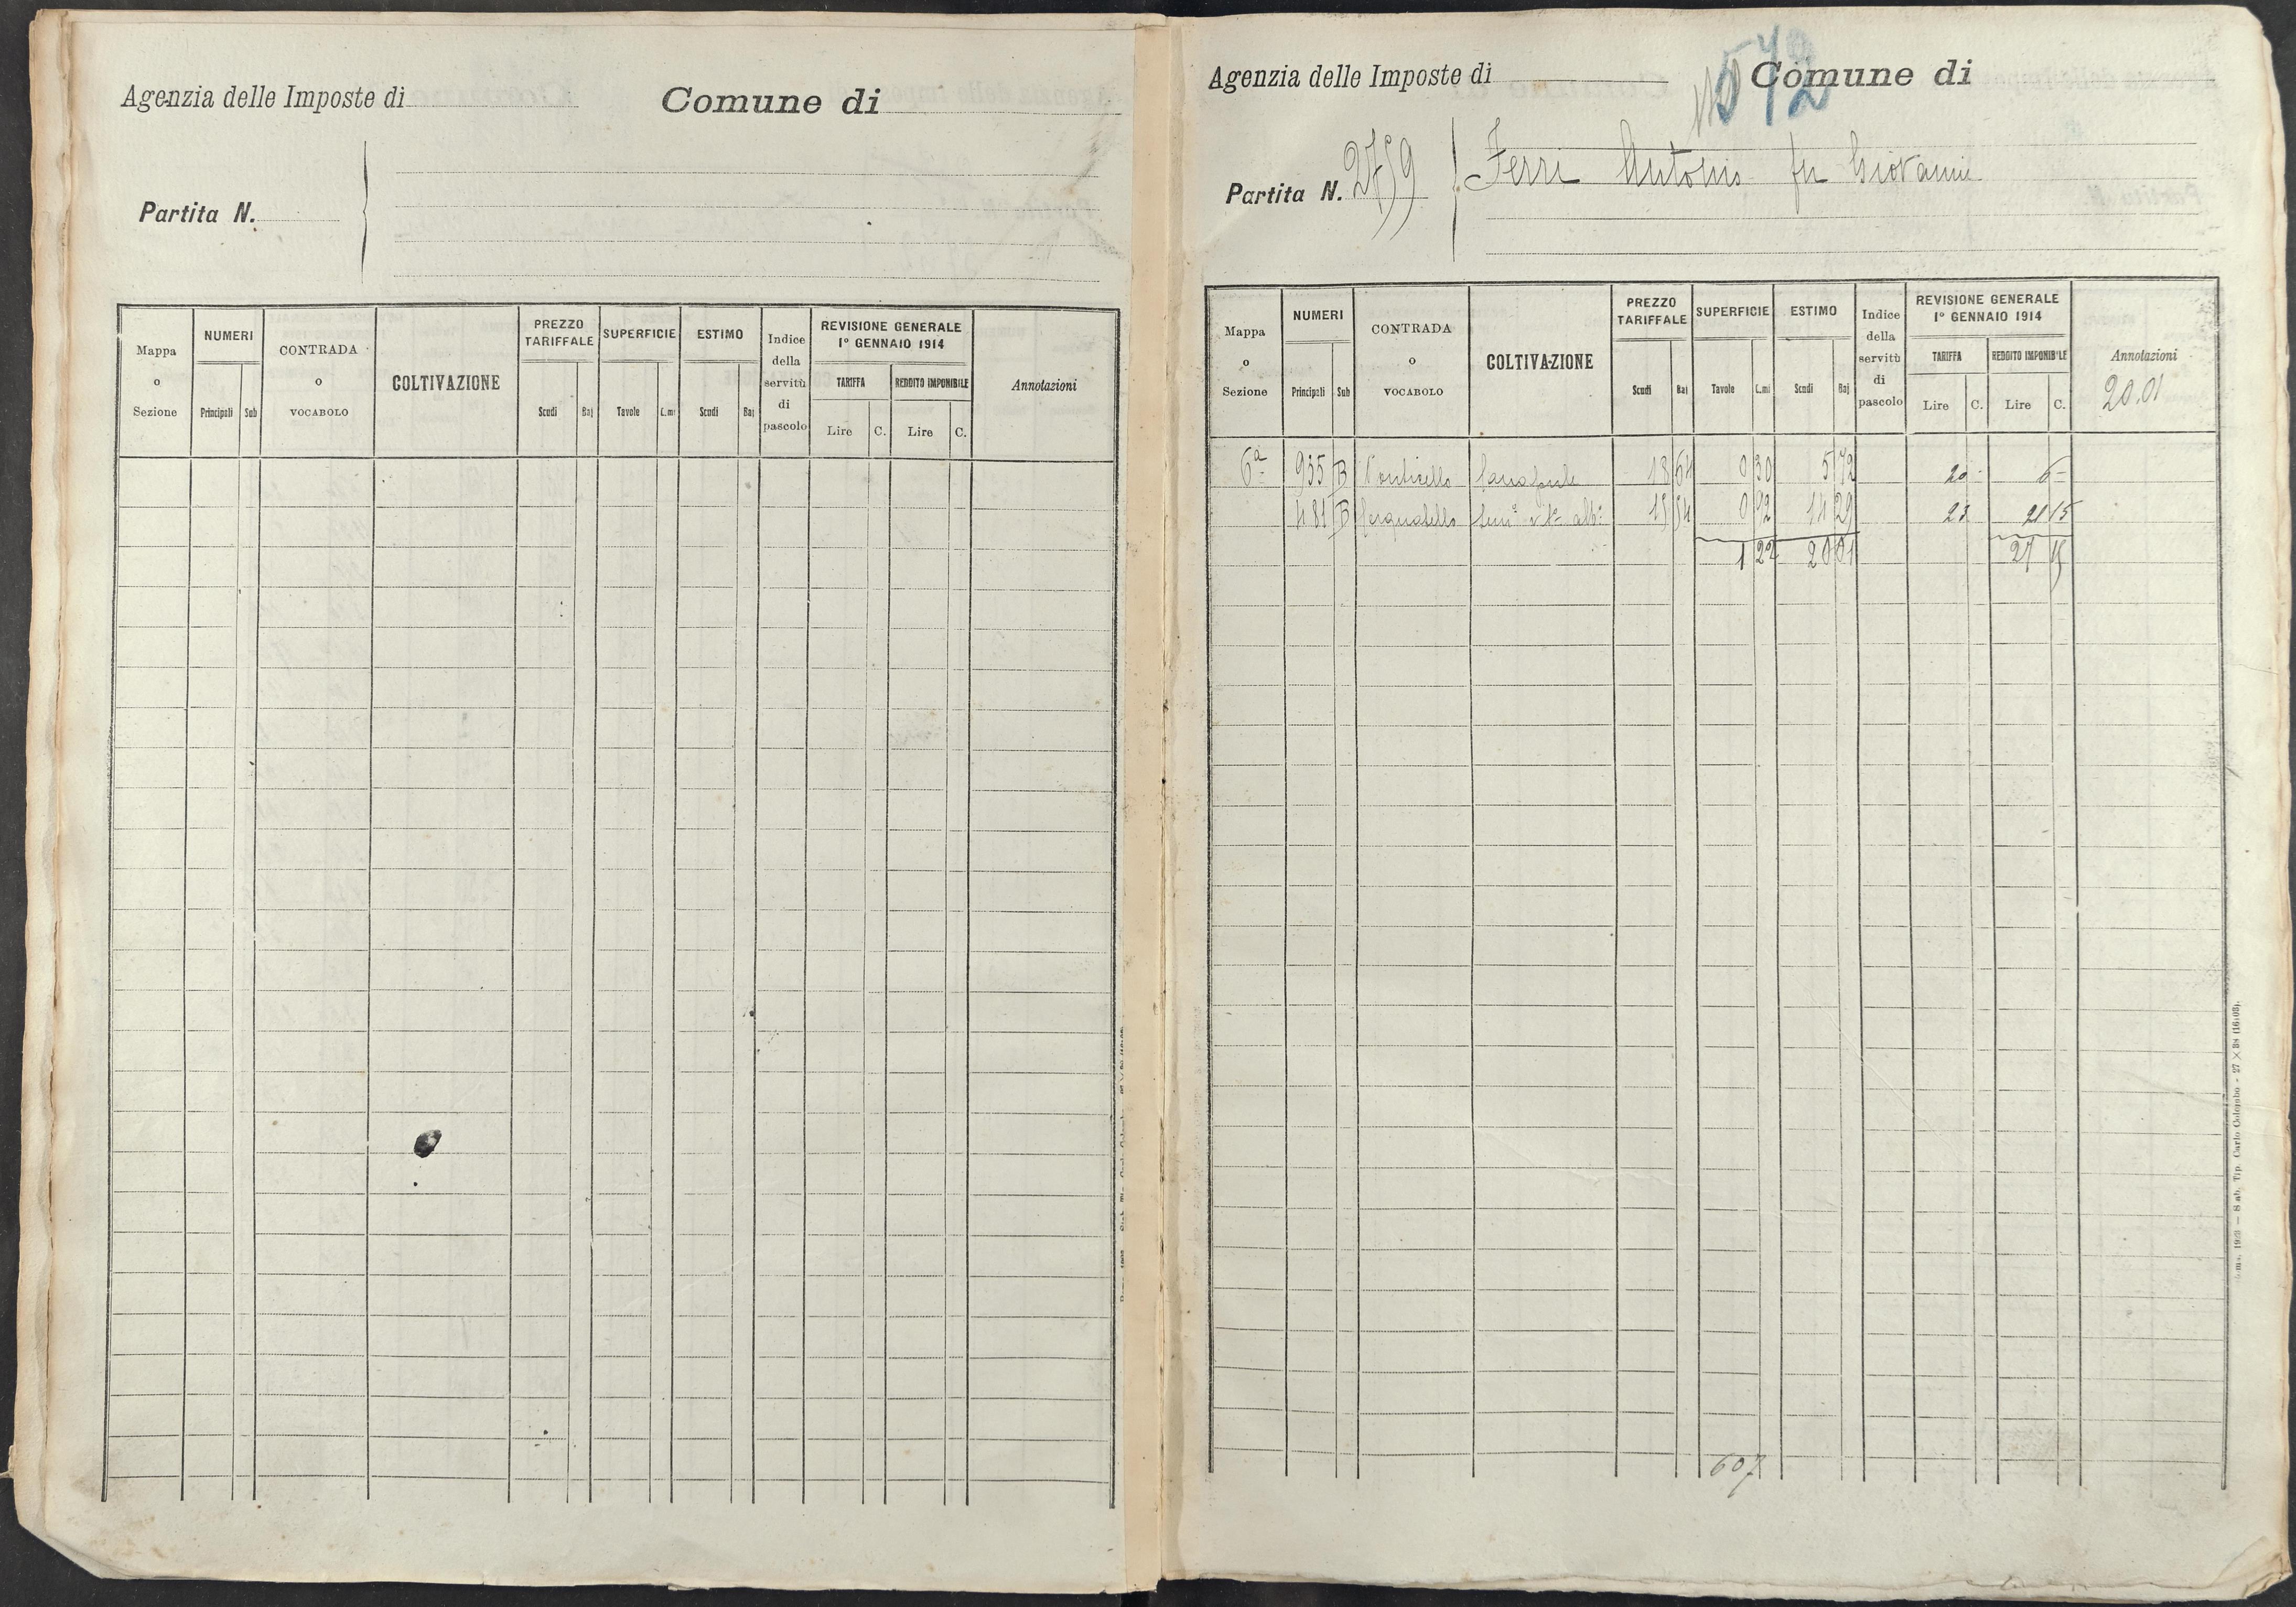 Agenzia delle Imposte di
Comune di
Partita N.
Mappa o Sezione
NUMERI
Principali
Sub
CONTRADA o VOCABOLO
COLTIVAZIONE
PREZZO TARIFFALE
Scudi
Baj
SUPERFICIE
Tavole
C.mi
ESTIMO
Scudi
Baj
Indice della servitù di pascolo
REVISIONE GENERALE 1º GENNAIO 1914
TARIFFA
Lire
C.
REDDITO IMPONIBILE
Lire
C.
Annotazioni
572
Agenzia delle Imposte di
Comune di
Partita N. 2759
Ferri Antonio fu Giovanni
Mappa o Sezione
NUMERI
Principali
Sub
CONTRADA o VOCABOLO
COLTIVAZIONE
PREZZO TARIFFALE
Scudi
Baj
SUPERFICIE
Tavole
C.mi
ESTIMO
Scudi
Baj
Indice della servitù di pascolo
REVISIONE GENERALE 1º GENNAIO 1914
TARIFFA
Lire
C.
REDDITO IMPONIBILE
Lire
C.
Annotazioni
20.01
6ª 935 B Ponticello 18 64 0 30 5 72 20 - 6 -
481 B 15 54 0 92 14 29 23 21 15
1 22 20 01 27 15
607
8 ab. Tip. Carlo Colombo - 27 × 38 (16103).